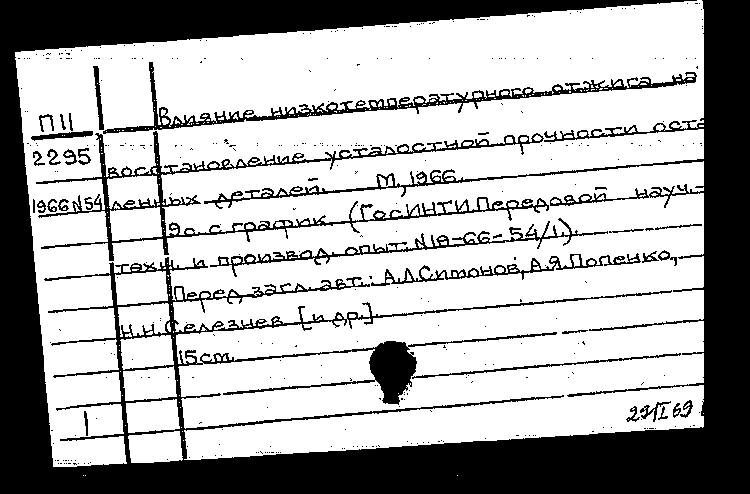 П11
2295
1966 N54
Влияние низкотемпературного отжига на
восстановление усталостной прочности оста
ленных деталей. М., 1966.
9с. с график. (ГосИНТИ. Передовой науч.-
техн. и производ. опыт: N18-66-54/1).
Перед загл. авт.: А.Л.Симонов, А.Я.Попенко,
Н.Н.Селезнев [и др.].
15cm.
1
29/I 69